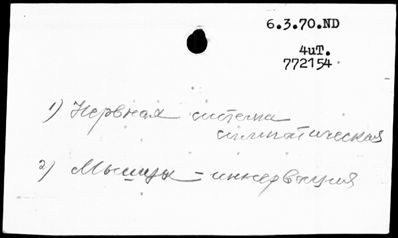 6.3.70.ND
4иТ.
772154
1) Нервная система
симпатическая
2) Мышцы - иннервация